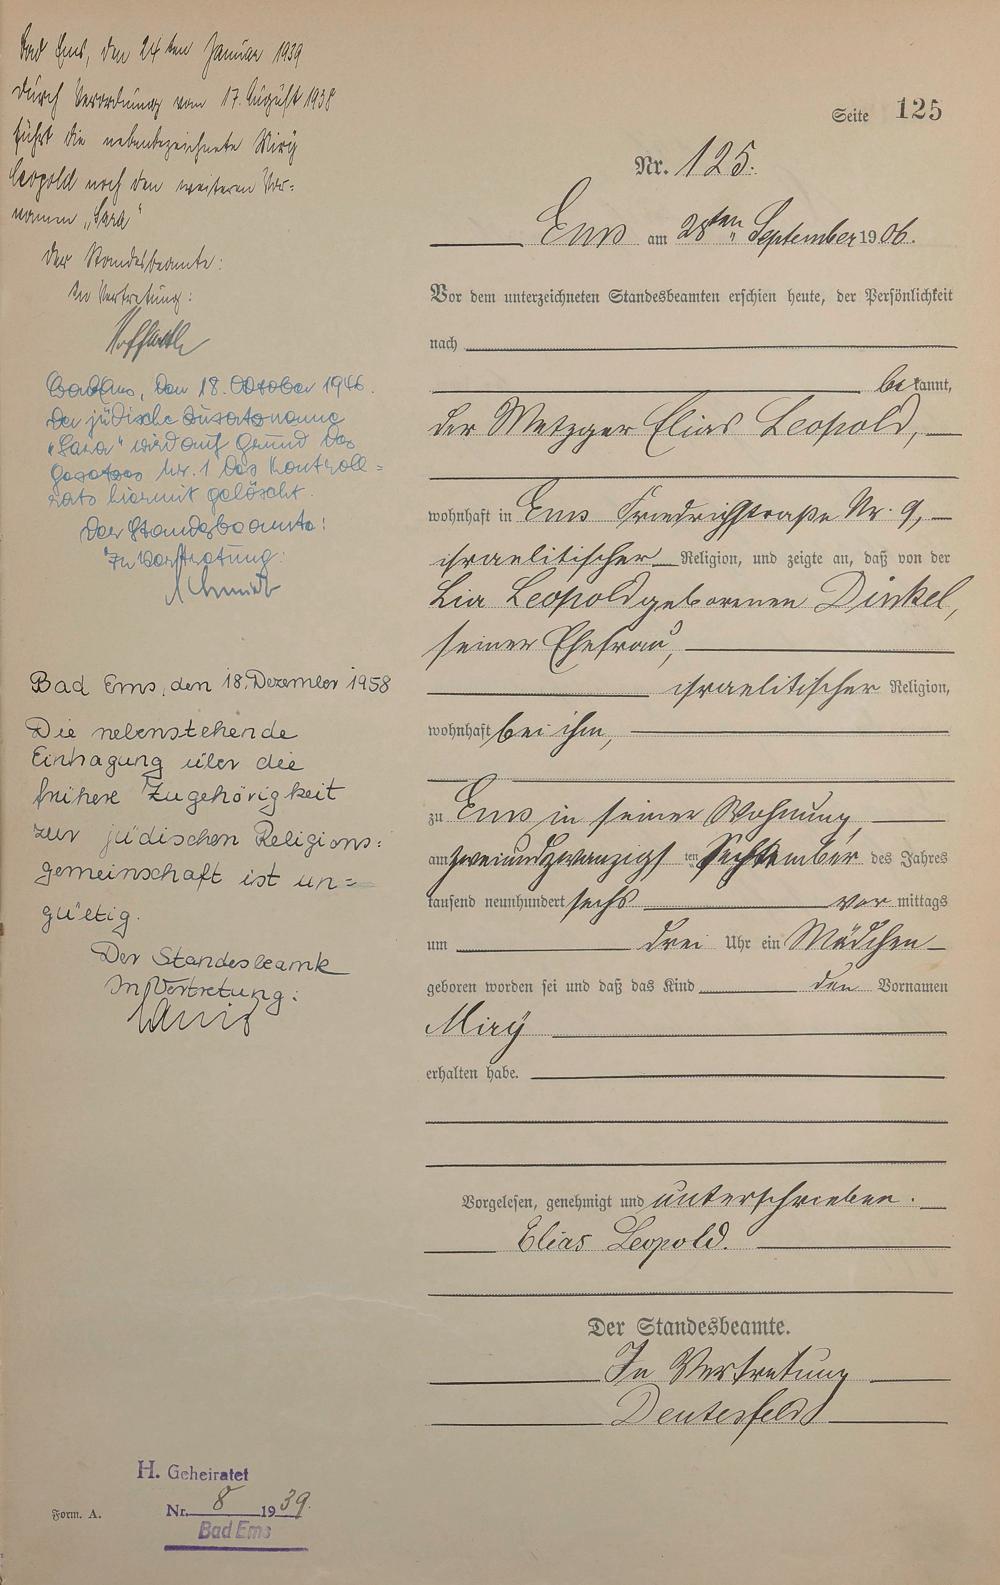 Bad Ems, den 24ten Januar 1939
Durch Verordnung vom 17. August 1938
führt die nebenbezeichnete Mirÿ
Leopold noch den weiteren Vor-
namen „Sara“
Der Standesbeamte:
In Vertretung:
Bad Ems, den 18. Oktober 1946.
Der jüdische Zusatzname
„Sara“ wird auf Grund des
Gesetzes Nr. 1 des Kontroll-
rats hiermit gelöscht.
Der Standesbeamte:
In Vertretung:
Schmidt
Bad Ems, den 18. Dezember 1958
Die nebenstehende
Eintragung über die
frühere Zugehörigkeit
zur jüdischen Religions-
gemeinschaft ist un-
gültig.
Der Standesbeamte
In Vertretung:
H. Geheiratet
Nr. 8 1939.
Bad Ems
Form. A.
Seite 125
Nr. 125.
Ems am 28ten September 1906.
Vor dem unterzeichneten Standesbeamten erschien heute, der Persönlichkeit
nach
bekannt,
der Metzger Elias Leopold,
wohnhaft in Ems Friedrichstraße Nr. 9,
israelitischer Religion, und zeigte an, daß von der
Lia Leopold geborenen Dinkel,
seiner Ehefrau,
israelitischer Religion,
wohnhaft bei ihm,
zu Ems in seiner Wohnung,
am zweiundzwanzigsten September des Jahres
tausend neunhundert sechs vor mittags
um drei Uhr ein Mädchen
geboren worden sei und daß das Kind den Vornamen
Mirÿ
erhalten habe.
Vorgelesen, genehmigt und unterschrieben.
Elias Leopold.
Der Standesbeamte.
In Vertretung